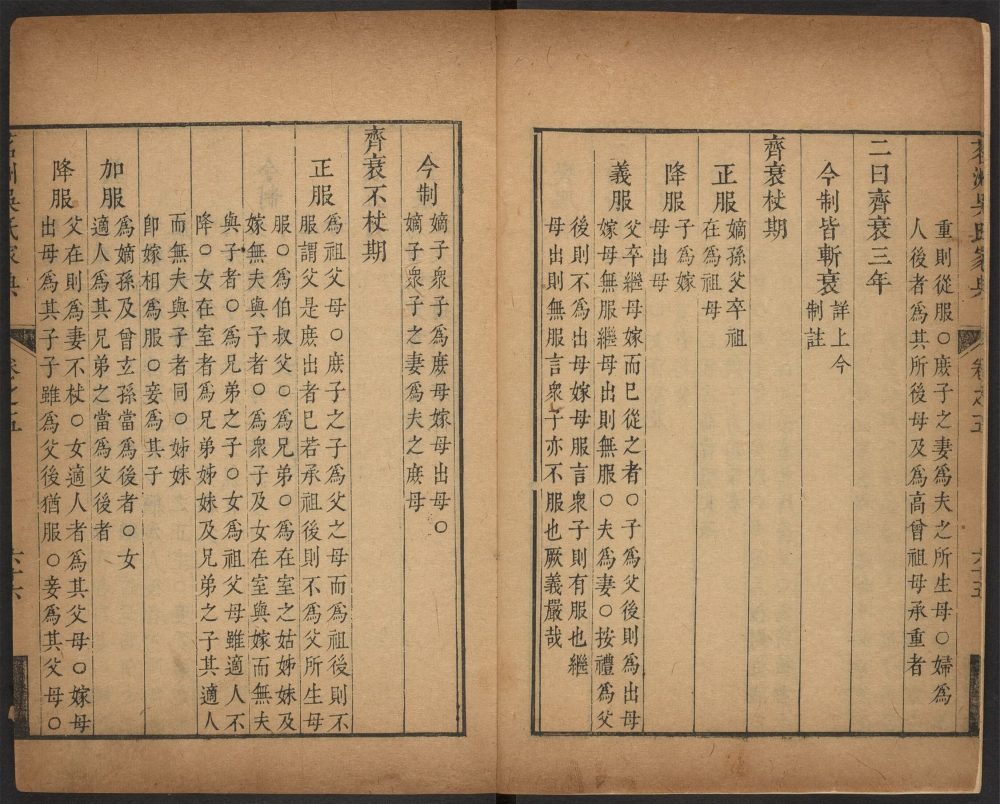 茗洲吳氏家典
卷之五
六十五
重則從服○庶子之妻爲夫之所生母○婦爲
人後者爲其所後母及爲高曾祖母承重者
二曰齊衰三年
今制皆斬衰 詳上今
制註
齊衰杖期
正服 嫡孫父卒祖
在爲祖母
降服 子爲嫁
母出母
義服 父卒繼母嫁而已從之者○子爲父後則爲出母
嫁母無服繼母出則無服○夫爲妻○按禮爲父
後則不爲出母嫁母服言衆子則有服也繼
母出則無服言衆子亦不服也厥義嚴哉
今制 嫡子衆子爲庶母嫁母出母○
嫡子衆子之妻爲夫之庶母
齊衰不杖期
正服 爲祖父母○庶子之子爲父之母而爲祖後則不
服謂父是庶出者已若承祖後則不爲父所生母
服○爲伯叔父○爲兄弟○爲在室之姑姊妹及
嫁無夫與子者○爲衆子及女在室與嫁而無夫
與子者○爲兄弟之子○女爲祖父母雖適人不
降○女在室者爲兄弟姊妹及兄弟之子其適人
而無夫與子者同○姊妹
卽嫁相爲服○妾爲其子
加服 爲嫡孫及曾玄孫當爲後者○女
適人爲其兄弟之當爲父後者
降服 父在則爲妻不杖○女適人者爲其父母○嫁母
出母爲其子子雖爲父後猶服○妾爲其父母○
茗洲吳氏家典
卷之五
六十六